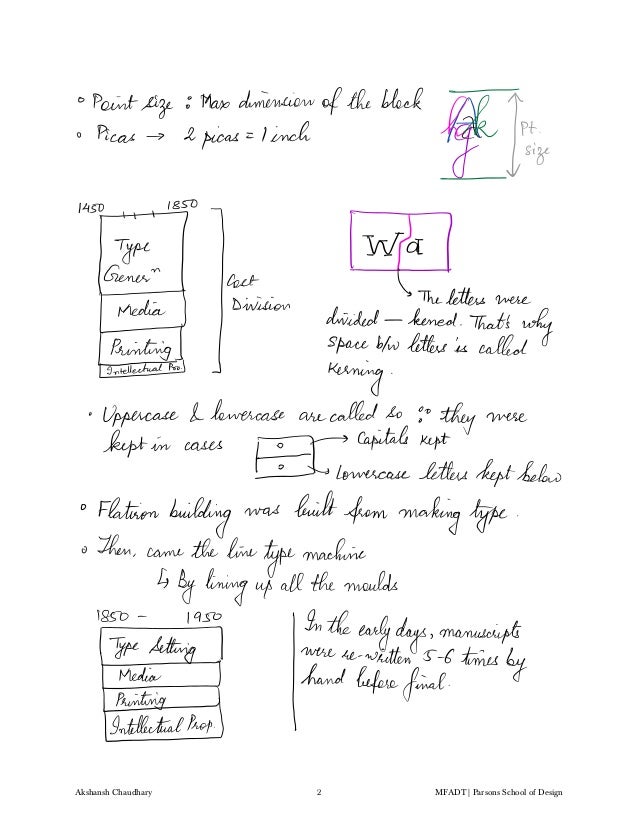 ° Point size : Max dimension of the block
° Picas → 2 picas = 1 inch
hgk
Pt.
size
1450 1850
Type
Generⁿ
Media
Printing
Intellectual Pro.
Cost
Division
Wa
The letters were
divided — kerned. That's why
space b/w letters is called
Kerning.
• Uppercase & lowercase are called so ∵ they were
kept in cases
→ Capitals kept
→ Lowercase letters kept below
° Flatiron building was built from making type.
° Then, came the line type machine
↳ By lining up all the moulds
1850 - 1950
Type Setting
Media
Printing
Intellectual Prop.
In the early days, manuscripts
were re-written 5-6 times by
hand before final.
Akshansh Chaudhary 2 MFADT | Parsons School of Design